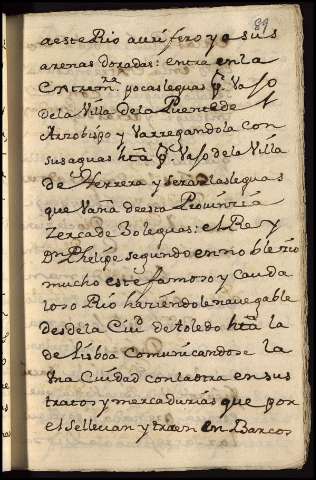 89
aesteRio aurifero y e sus
arenas doradas: entra en la
Extrem.ra pocas leguas p.r vaso
de la Villa de la Puente de
Arzobispo y Va rregandola con
sus aguas hta p.r Vaso de la Villa
de Herrera y seran las leguas
que Vaña de esta Provincia
zerca de 30 leguas: el Rey
Dn Phelipe segundo ennoblezio
mucho este famoso y cauda
loso Rio haziendole nauegable
desde la Ciud. de toledo hta la
de Lisboa Comunicandose la
Vna Ciudad con la otra en sus
tratos y mercadurias que por
el selleuan y traen en Barcos